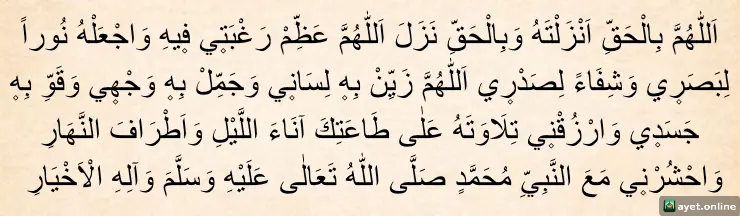 اَللّٰهُمَّ بِالْحَقِّ اَنْزَلْتَهُ وَبِالْحَقِّ نَزَلَ اَللّٰهُمَّ عَظِّمْ رَغْبَت۪ي ف۪يهِ وَاجْعَلْهُ نُوراً
لِبَصَر۪ي وَشِفَاءً لِصَدْر۪ي اَللّٰهُمَّ زَيِّنْ بِه۪ لِسَان۪ي وَجَمِّلْ بِه۪ وَجْه۪ي وَقَوِّ بِه۪
جَسَد۪ي وَارْزُقْن۪ي تِلَاوَتَهُ عَلٰى طَاعَتِكَ آنَاءَ اللَّيْلِ وَاَطْرَافَ النَّهَارِ
وَاحْشُرْن۪ي مَعَ النَّبِيِّ مُحَمَّدٍ صَلَّى اللّٰهُ تَعَالٰى عَلَيْهِ وَسَلَّمَ وَآلِهِ الْاَخْيَارِ
ayet.online